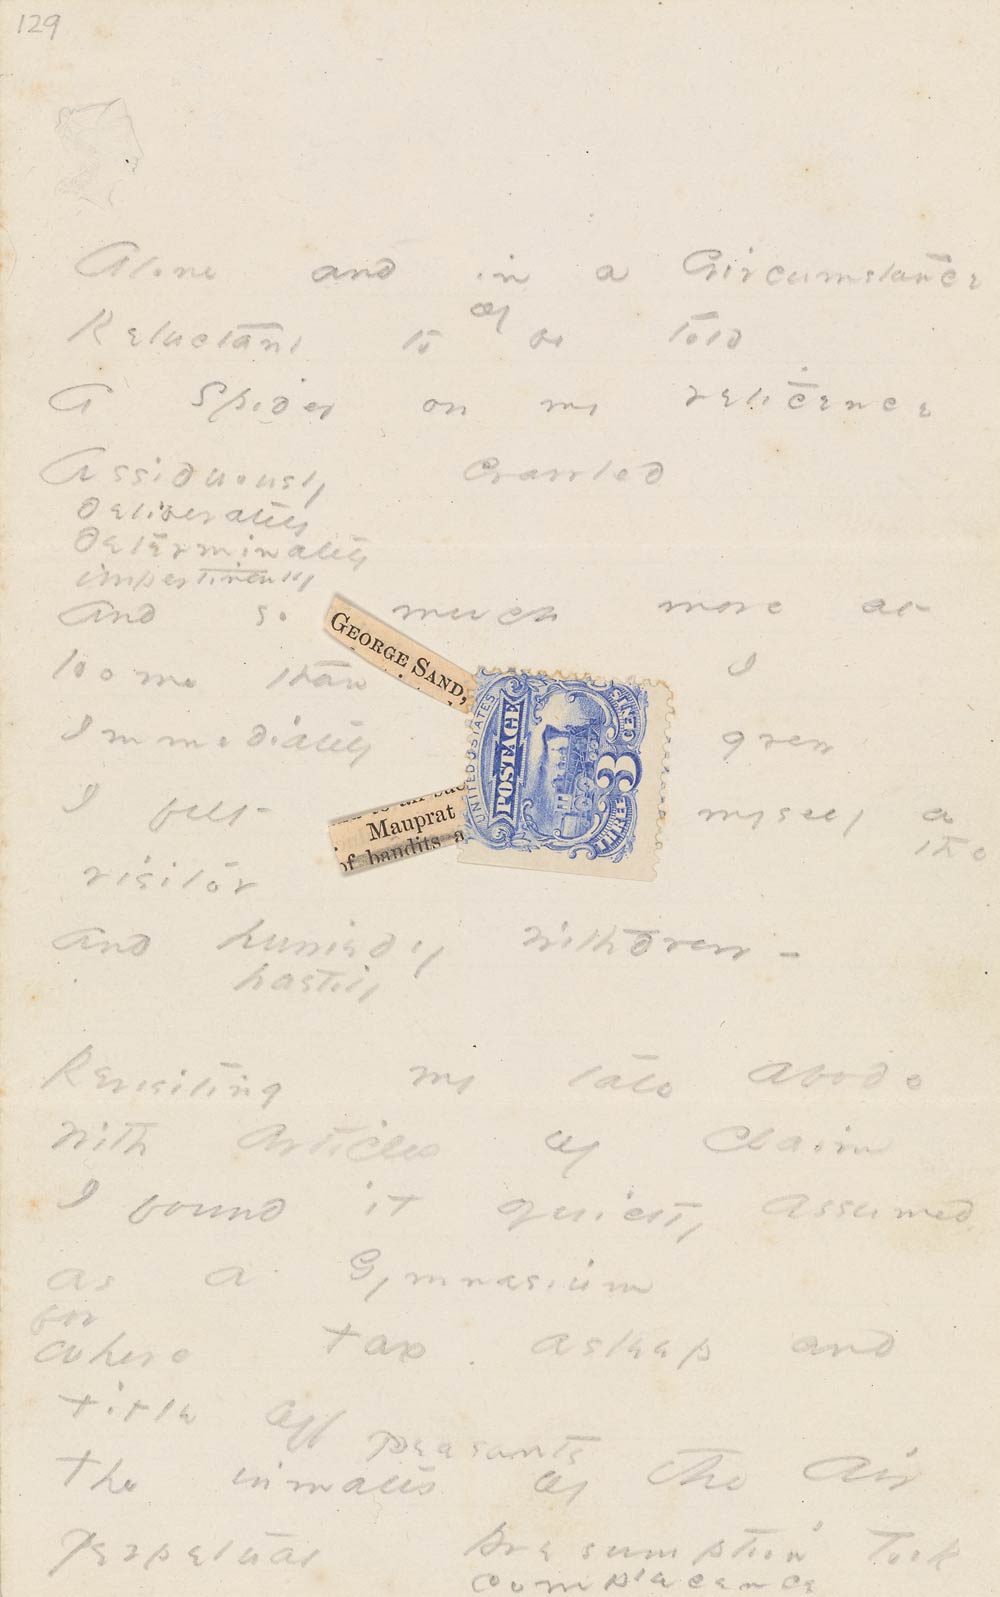 129
Alone and in a Circumstance
of
Reluctant to be told
A Spider on my reticence
Assiduously Crawled
deliberately
determinately
impertinently
and so much more at
Home than I
Immediately grew
I felt myself a
the
visitor
and hurriedly withdrew -
hastily
GEORGE SAND,
Mauprat
of bandits a
UNITED STATES
POSTAGE
3
THREE CENTS
Revisiting my late abode
with articles of Claim
I found it quietly assumed
as a Gymnasium
for
where tax asleep and
title off
peasants
the inmates of the Air
perpetual presumption took
complacence